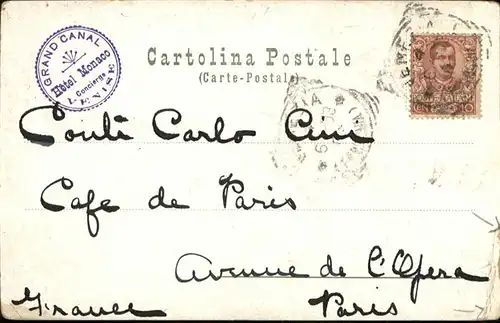 GRAND CANAL
Hôtel Monaco
Concierge
VENISE
Cartolina Postale
(Carte-Postale)
Conti Carlo
Cafe de Paris
Avenue de L'Opera
France Paris